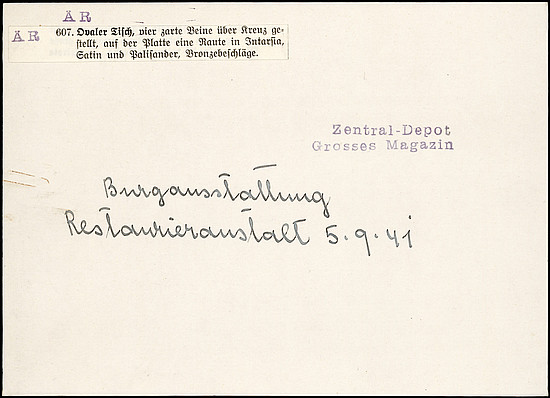 ÄR
ÄR
607. Ovaler Tisch, vier zarte Beine über Kreuz ge-
stellt, auf der Platte eine Raute in Intarsia,
Satin und Palisander, Bronzebeschläge.
Zentral-Depot
Grosses Magazin
Burgausstattung
Restaurieranstalt 5.9.41